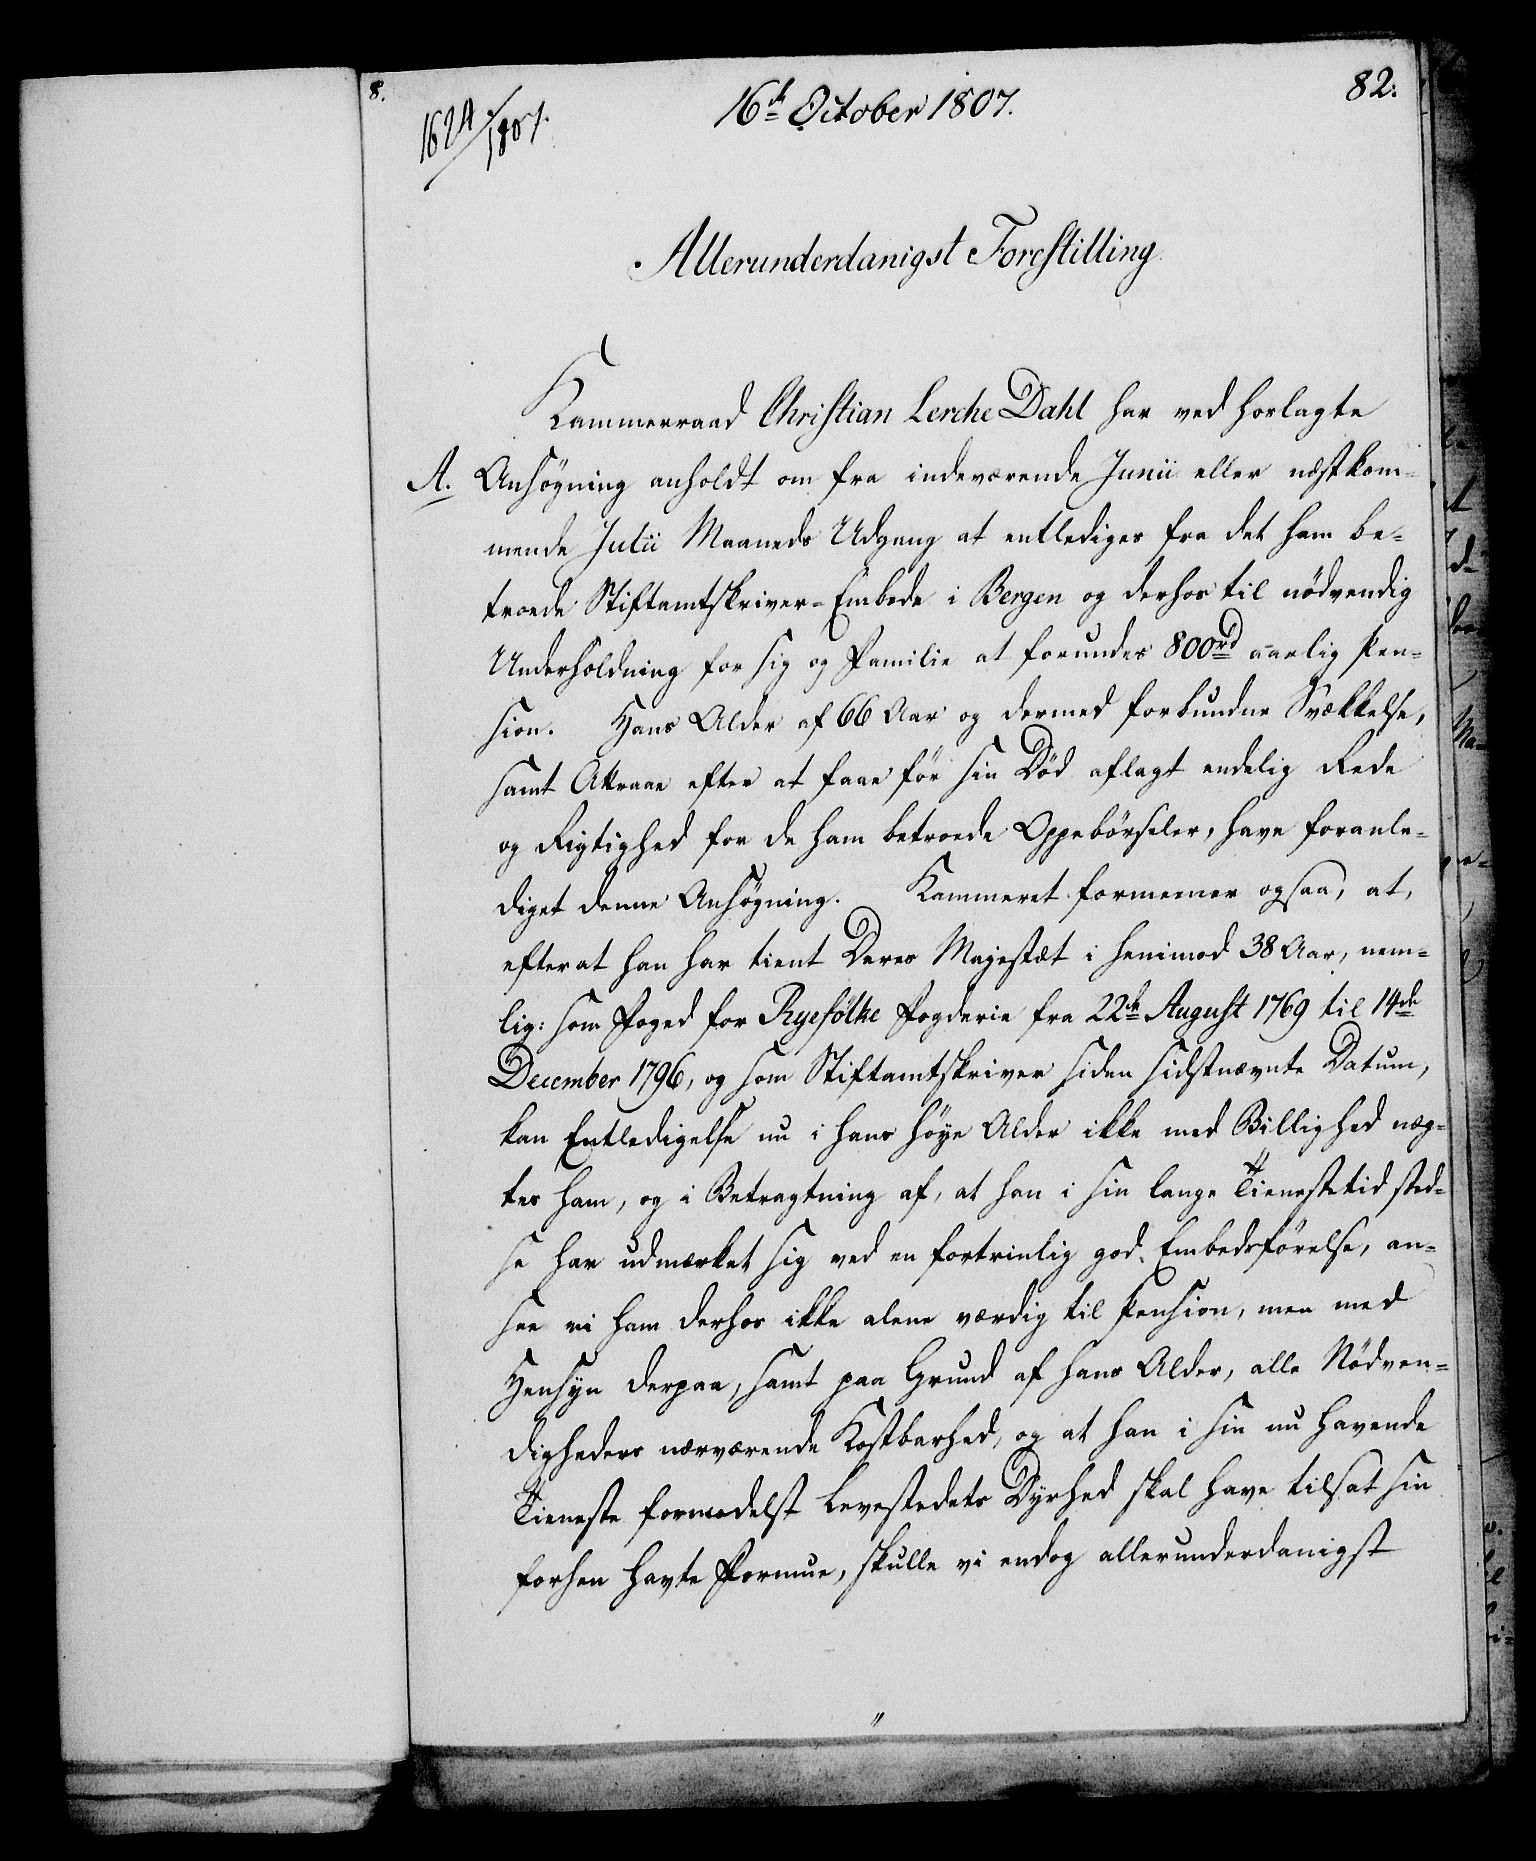 8.
1624/1807.
16de October 1807.
82.
Allerunderdanigst Forestilling
Kammerraad Christian Lerche Dahl har ved hoslagte
A. Ansøgning anholdt om fra indeværende Junii eller næstkom-
mende Julii Maaneds Udgang at entlediges fra det ham be-
troede Stiftamtskriver-Embede i Bergen og derhos til nödvendig
Underholdning for sig og Familie at forundes 800rd aarlig Pen-
sion. Hans Alder af 66 Aar og dermed forbundne Svækkelse,
samt Attraae efter at faae för sin Död aflagt endelig Rede
og Rigtighed for de ham betroede Oppebörseler, have foranle-
diget denne Ansøgning. Kammeret formener ogsaa, at,
efterat han har tient Deres Majestæt i henimod 38 Aar, nem-
lig: som Foged for Ryefölke Fogderie fra 22de August 1769 til 14de
December 1796, og som Stiftamtskriver siden sidstnævnte Datum,
kan Entledigelse nu i hans höye Alder ikke med Billighed næg-
tes ham, og i Betragtning af, at han i sin lange Tienestetid sted-
se har udmærket sig ved en fortrinlig god Embedsförelse, an-
see vi ham derhos ikke alene værdig til Pension, men med
Hensyn derpaa, samt paa Grund af hans Alder, alle Nödven-
digheders nærværende Kostbarhed, og at han i sin nu havende
Tieneste formedelst Levestedets Dyrhed skal have tilsat sin
forhen havte Formue, skulle vi endog allerunderdanigst